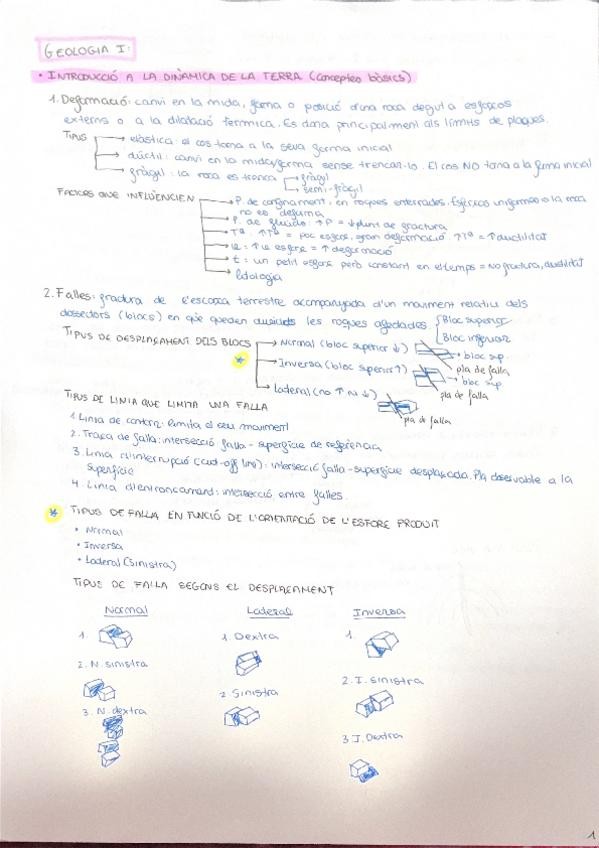 GEOLOGIA I:
• INTRODUCCIÓ A LA DINÀMICA DE LA TERRA (conceptes bàsics)
1. Deformació: canvi en la mida, forma o posició d'una roca degut a esforços
externs o a la dilatació tèrmica. Es dona principalment als límits de plaques.
TIPUS → elàstica: el cos torna a la seva forma inicial
→ dúctil: canvi en la mida/forma sense trencar-lo. El cos NO torna a la forma inicial
→ fràgil: la roca es trenca → fràgil
→ semi-fràgil
FACTORS QUE INFLUENCIEN → P. de confinament, en roques enterrades. Esforços uniformes o la roca
no es deforma
→ P. de fluido: ↑P = ↓punt de fractura
→ Tª: ↑Tª = poc esforç, gran deformació. ↑Tª = ↑ductilitat
→ ↑ esforç = ↑ deformació
→ t: un petit esforç però constant en el temps = No fractura, ductilitat
→ Litologia
2. Falles: fractura de l'escorça terrestre acompanyada d'un moviment relatiu dels
dossectors (blocs) en què queden dividits les roques afectades. Bloc superior
Bloc inferior
TIPUS DE DESPLAÇAMENT DELS BLOCS → Normal (bloc superior ↓) → bloc sup.
pla de falla
* → Inversa (bloc superior ↑) → bloc sup
pla de falla
→ Lateral (no ↑ ni ↓)
pla de falla
TIPUS DE LINIA QUE LIMITA UNA FALLA
1. Linia de contorn: limita el seu moviment
2. Traça de falla: intersecció falla - superfície de referència
3. Linia d'interrupció (cut-off line): intersecció falla - superfície desplaçada. Pla observable a la
superfície
4. Linia d'entroncament: intersecció entre falles.
* TIPUS DE FALLA EN FUNCIÓ DE L'ORIENTACIÓ DE L'ESFORÇ PRODUIT
• Normal
• Inversa
• Lateral (sinistra)
TIPUS DE FALLA SEGONS EL DESPLAÇAMENT
Normal Lateral Inversa
1. 1. Dextra 1.
2. N. sinistra 2. I. sinistra
3. N. dextra 2. Sinistra
3 I. Dextra
1